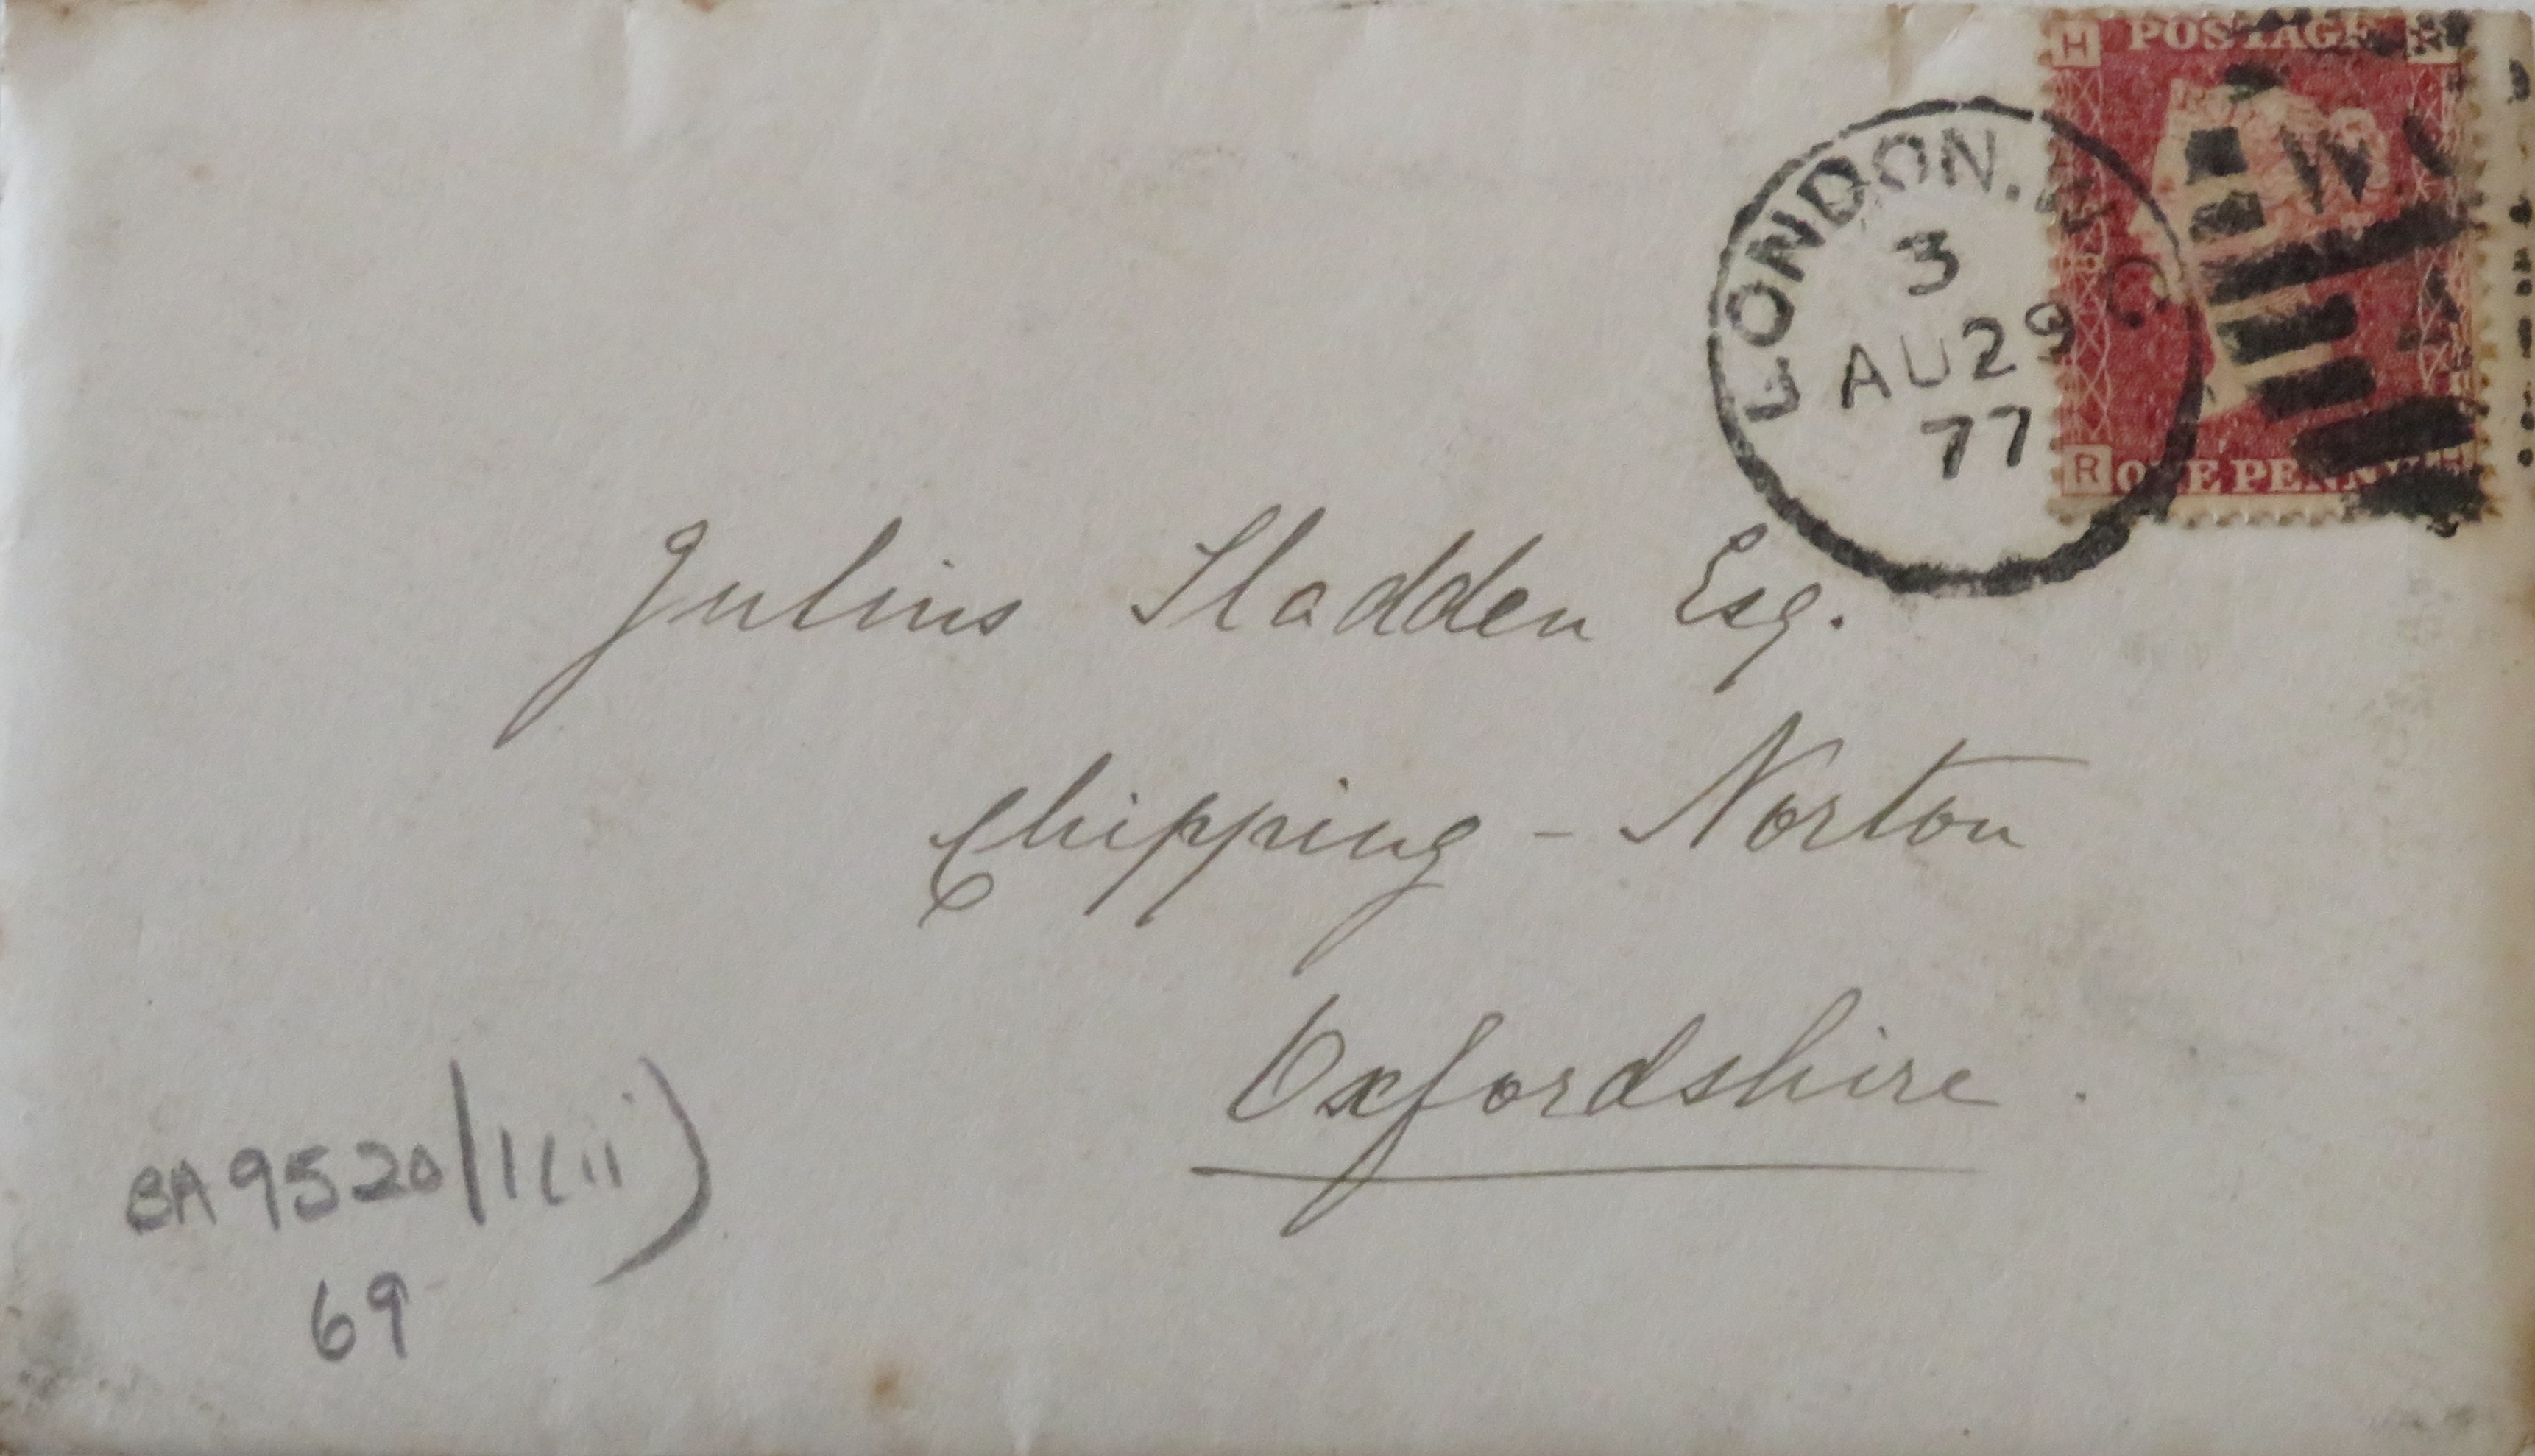 H POSTAGE R
LONDON. W C
3
AU 29
77
W.C
R ONE PENNY H
Julius Sladden Esq.
Chipping - Norton
Oxfordshire.
BA 9520/1(ii)
69